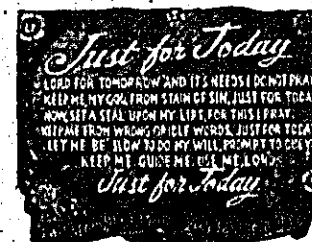 Just for Today
LORD FOR TOMORROW AND ITS NEEDS I DO NOT PRAY
KEEP ME, MY GOD, FROM STAIN OF SIN, JUST FOR TODAY
NOW, SET A SEAL UPON MY LIPS, FOR THIS I PRAY
KEEP ME FROM WRONG OR IDLE WORDS, JUST FOR TODAY
LET ME BE SLOW TO DO MY WILL, PROMPT TO OBEY
KEEP ME, GUIDE ME, USE ME, LORD
Just for Today